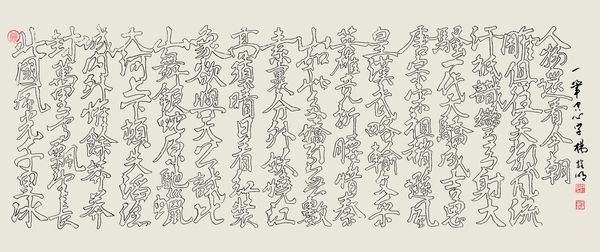 北國風光千里冰
封萬里雪飄望長
城內外惟餘莽莽
大河上下頓失滔滔
山舞銀蛇原馳蠟
象欲與天公試比
高須晴日看紅裝
素裹分外妖嬈江
山如此多嬌引無數
英雄競折腰惜秦
皇漢武略輸文采
唐宗宋祖稍遜風
騷一代天驕成吉思
汗祇識彎弓射大
雕俱往矣數風流
人物還看今朝
一筆空心字楊